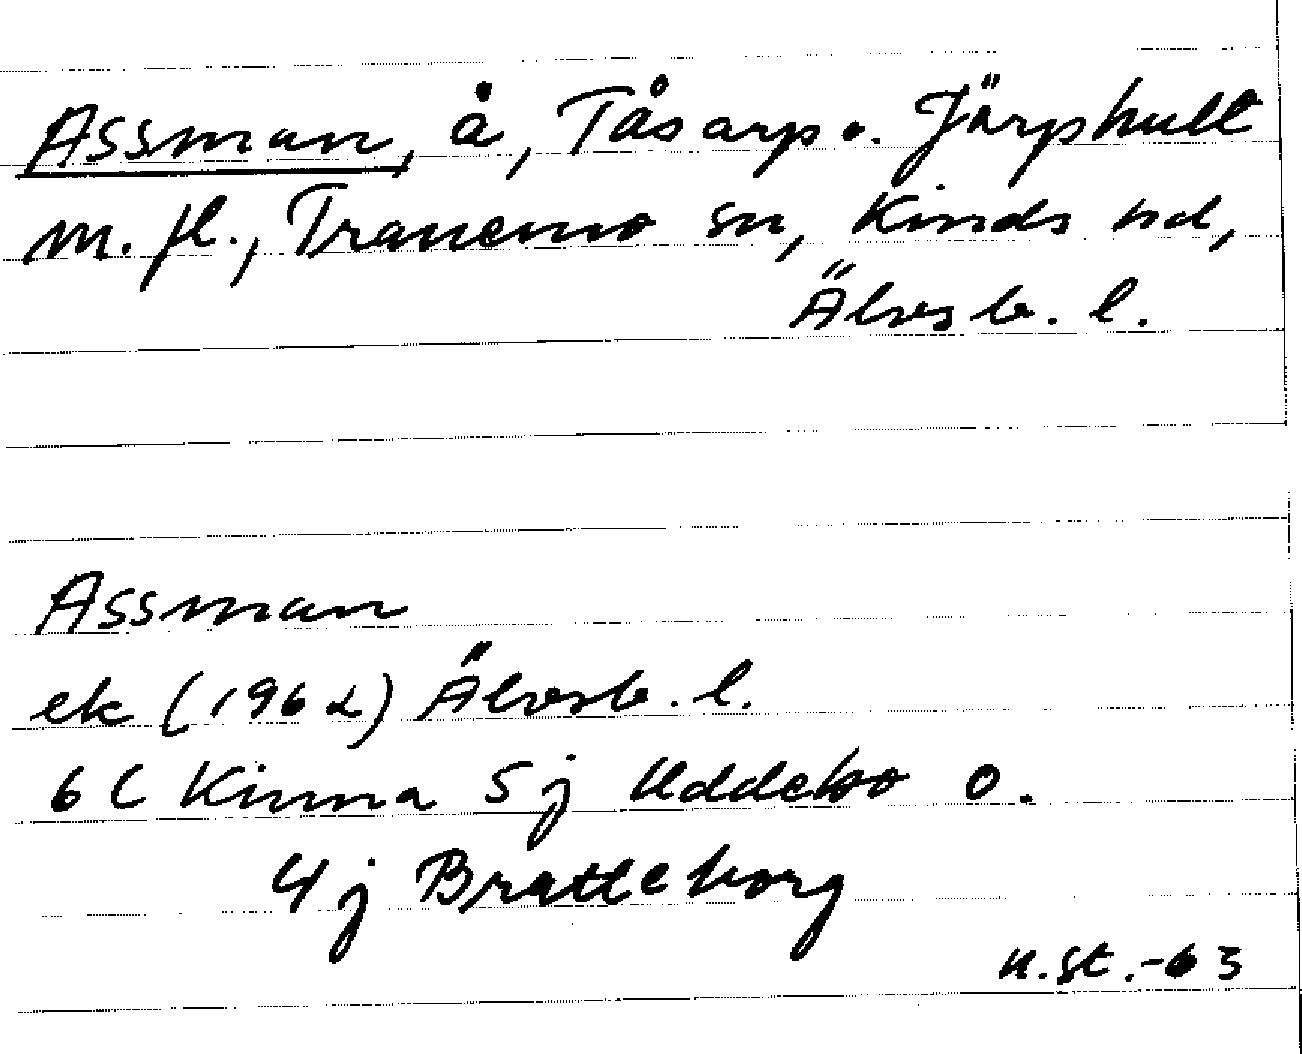 Assman, å, Tåsarp o. Järphult
m. fl., Tranemo sn, Kinds hd,
Älvsb. l.
Assman
ek (1962) Älvsb. l.
6 C Kinna 5 j Uddebo o.
4 j Bratteborg
u.st.-63